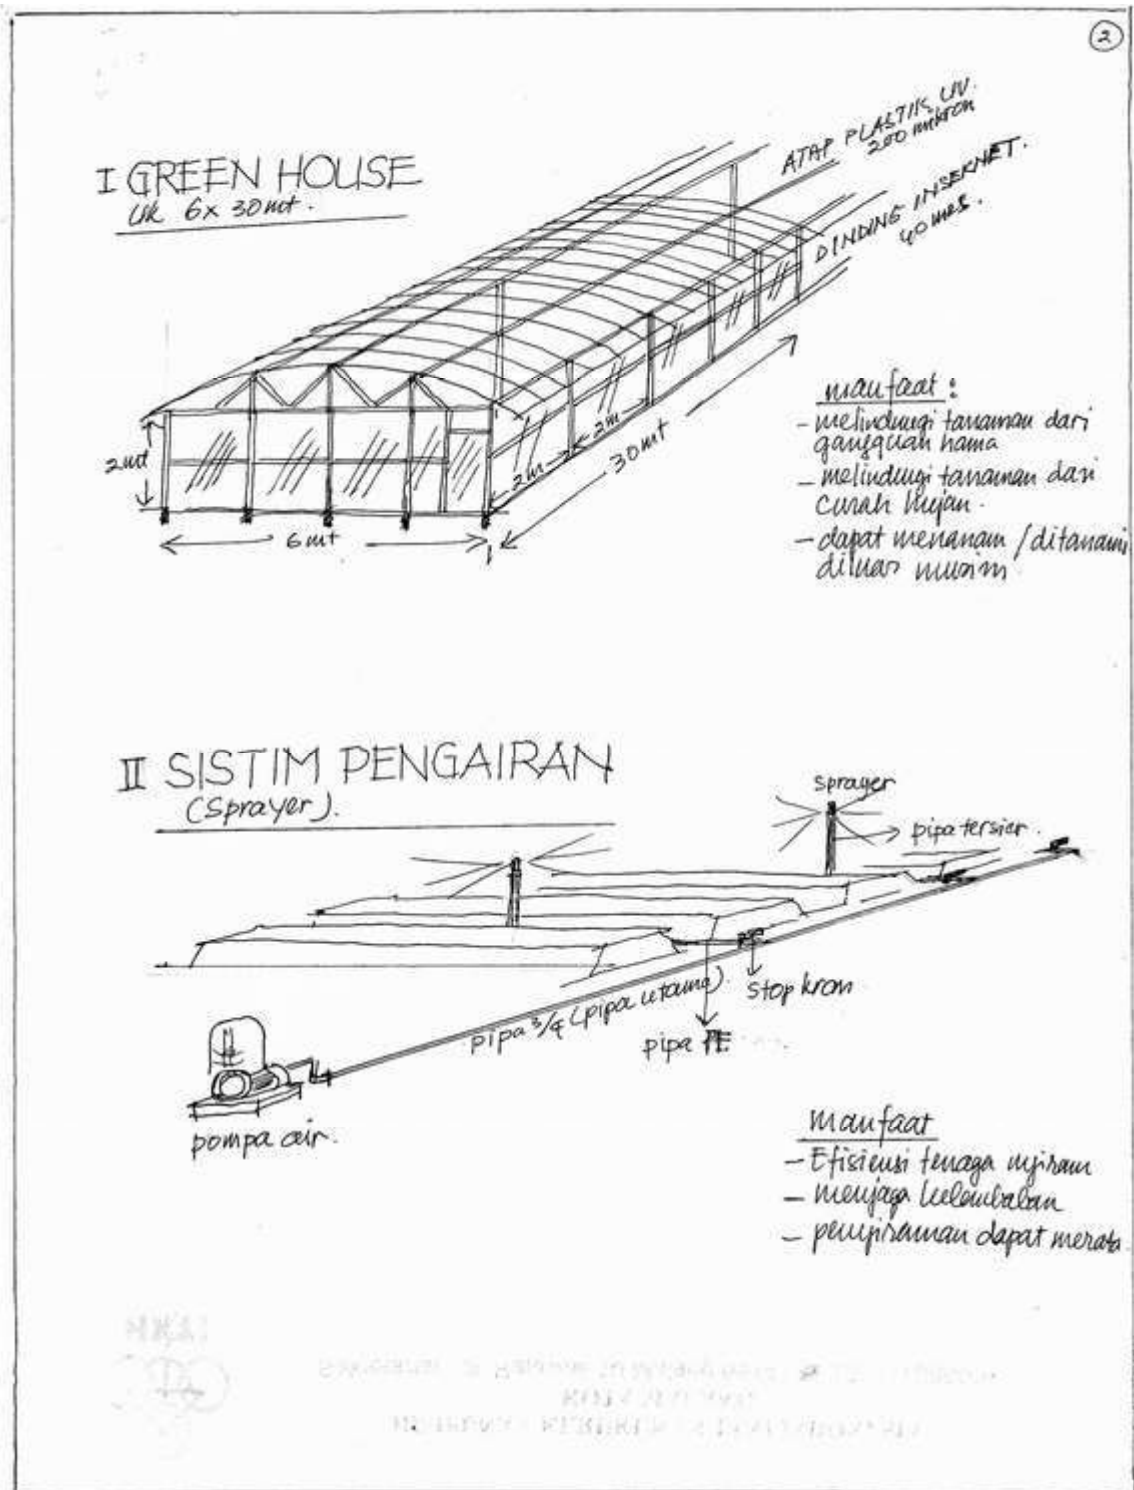 2
I GREEN HOUSE
Uk 6x30mt.
ATAP PLASTIK UV.
200 mikron
DINDING INSEKNET.
40 mes.
2mt
6mt
2m
2m
30mt
manfaat:
- melindungi tanaman dari
gangguan hama
- melindungi tanaman dari
curah hujan.
- dapat menanam / ditanami
diluar musim
II SISTIM PENGAIRAN
(Sprayer).
sprayer
pipa tersier.
stop kran
pipa 3/4 (pipa utama)
pipa PE
pompa air.
manfaat
- Efisiensi tenaga
- menjaga kelembaban
- penyiraman dapat merata